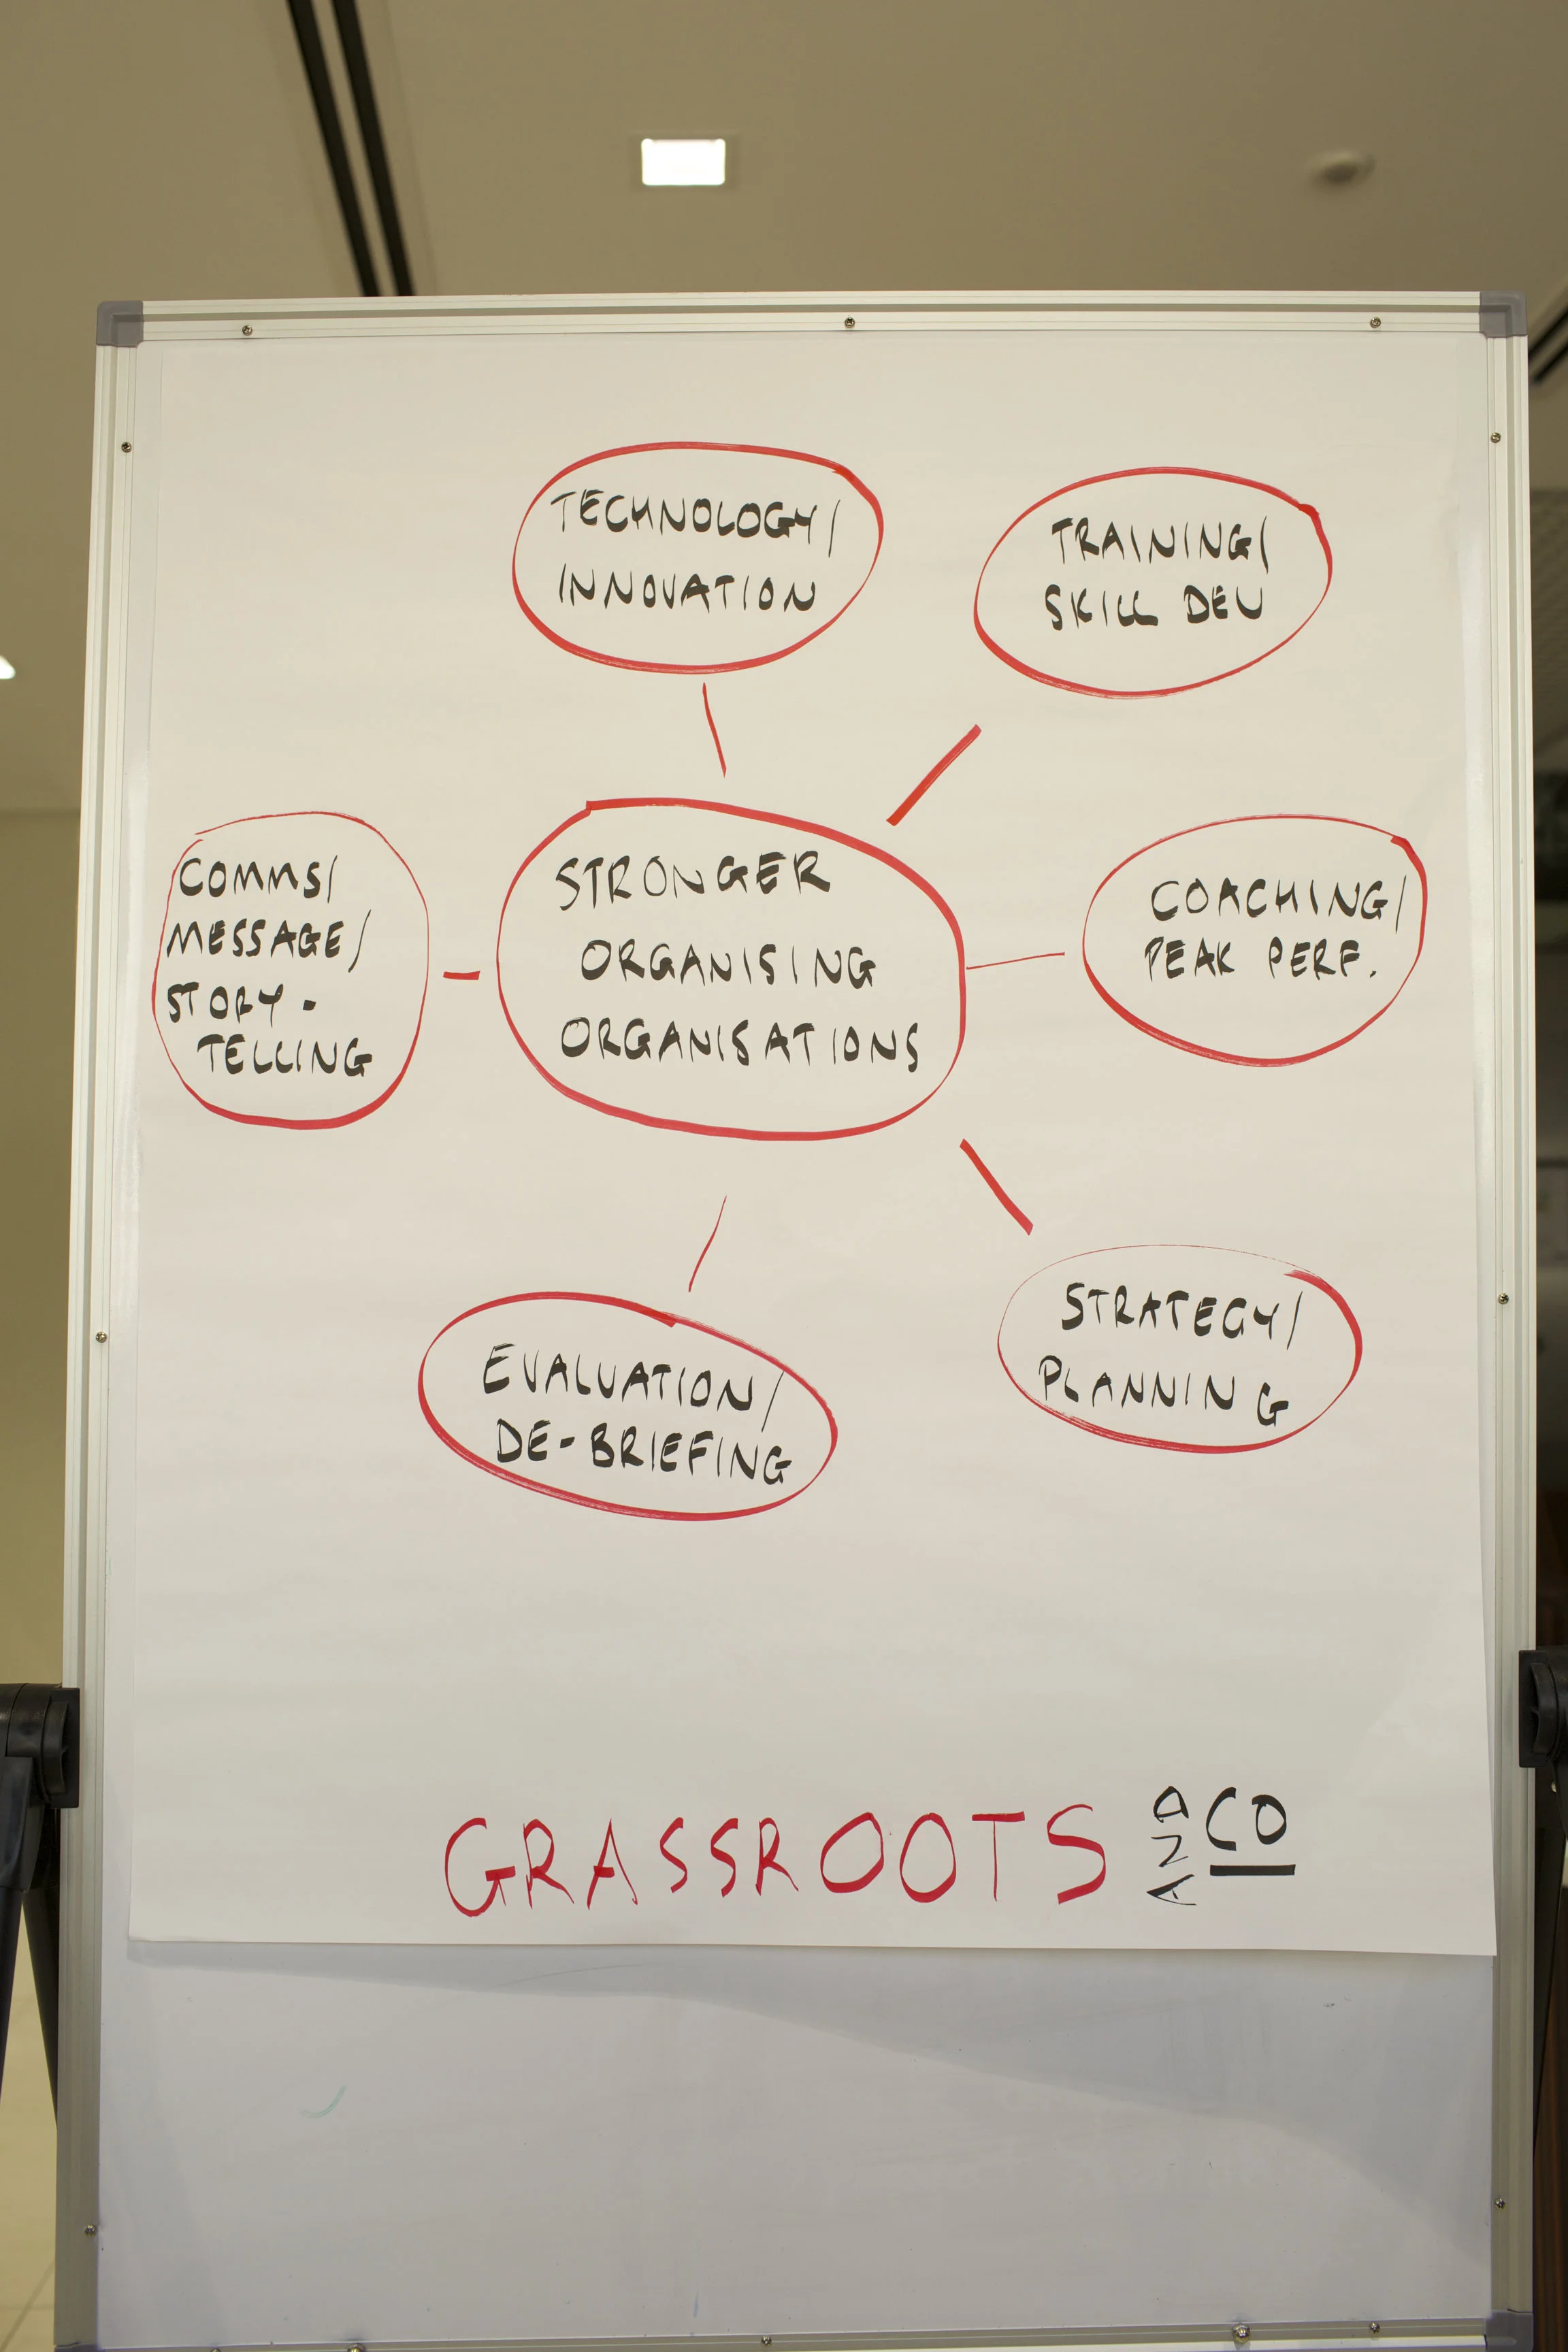 TECHNOLOGY/
INNOVATION
TRAINING/
SKILL DEV
COMMS/
MESSAGE/
STORY-
TELLING
STRONGER
ORGANISING
ORGANISATIONS
COACHING/
PEAK PERF.
EVALUATION/
DE-BRIEFING
STRATEGY/
PLANNING
GRASSROOTS AND CO